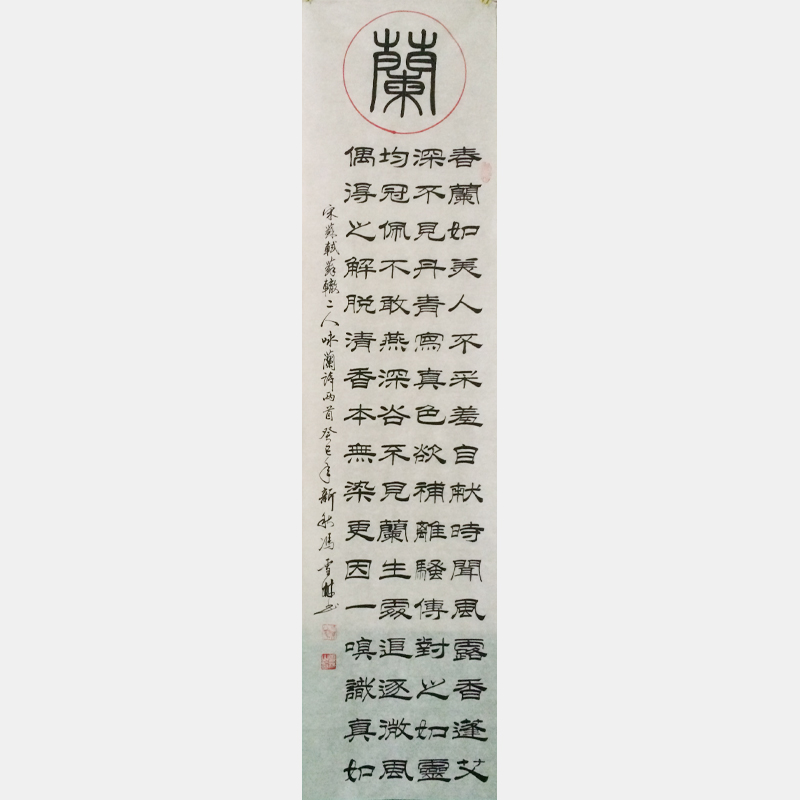 蘭
春蘭如美人不采羞自献時聞風露香蓬艾
深不見丹青寫真色欲補離騷傳對之如靈
均冠佩不敢燕深谷不見蘭生處追逐微風
偶得之解脱清香本無染更因一嗅識真如
宋蘇軾蘇轍二人咏蘭詩兩首癸巳年新秋馮雪